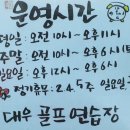 운영시간
평일: 오전 10시 ~ 오후 11시
주말: 오전 10시 ~ 오후 6시
일요일: 2시 ~ 오후 6시
정기휴무: 2.4.5주 일요일
대우 골프연습장